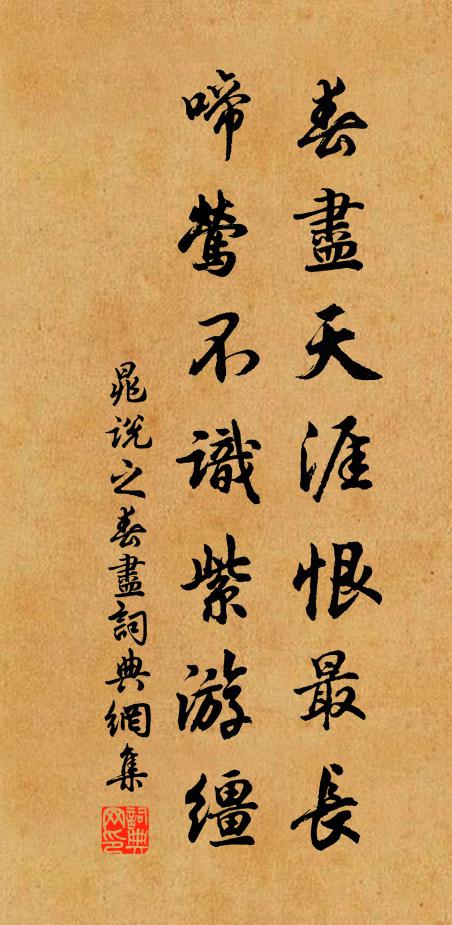 春盡天涯恨最長
啼鶯不識紫游繮
晁說之春盡詞典網集
詞典网印